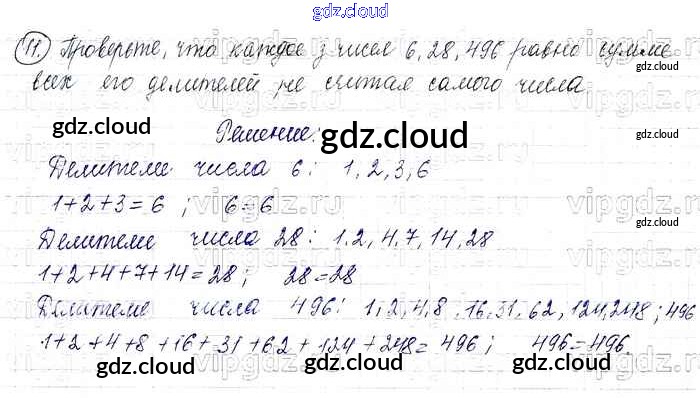 gdz.cloud
11. Проверьте, что каждое з чисел 6, 28, 496 равно сумме
всех его делителей, не считая самого числа
gdz.cloud gdz.cloud gdz.cloud
Решение:
Делители числа 6: 1, 2, 3, 6
1+2+3=6 ; 6=6
gdz.cloud
Делители числа 28: 1.2, 4.7, 14, 28
1+2+4+7+14=28; 28=28
Делители числа 496: 1, 2, 4, 8, 16, 31, 62, 124, 248; 496
1+2+4+8+16+31+62+124+248=496; 496=496.
gdz.cloud gdz.cloud gdz.cloud